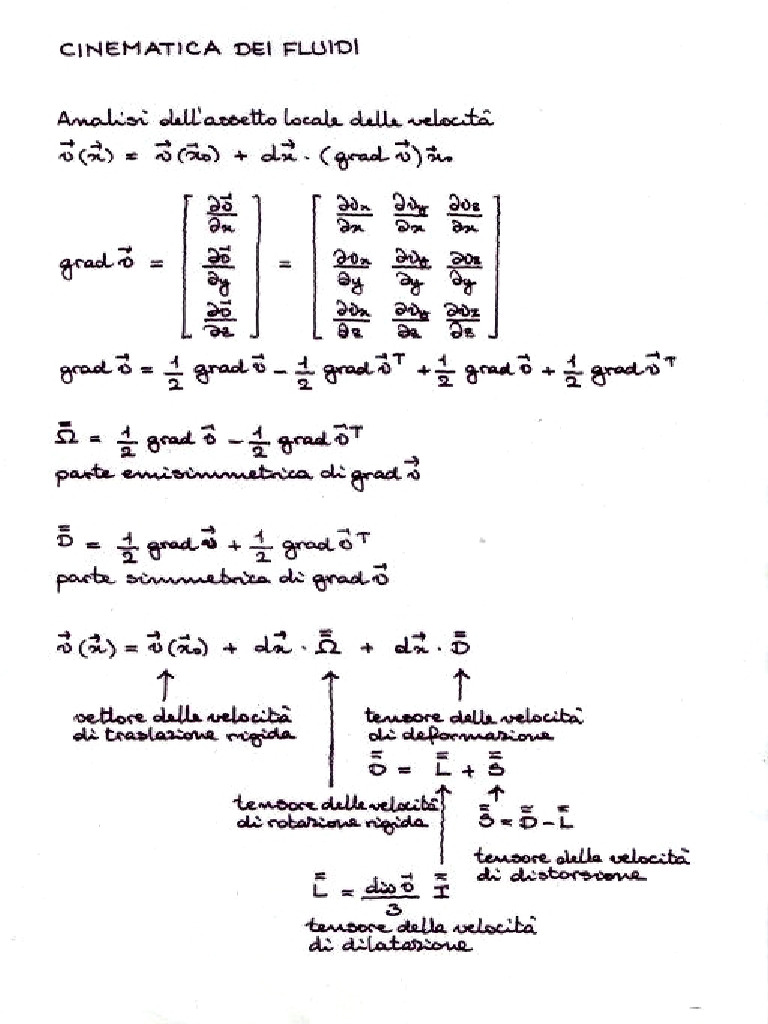 CINEMATICA DEI FLUIDI
Analisi dell'assetto locale delle velocità
v⃗(x⃗) = v⃗(x⃗₀) + dx⃗ · (grad v⃗)x⃗₀
grad v⃗ = [∂v⃗/∂x ; ∂v⃗/∂y ; ∂v⃗/∂z] = [∂vx/∂x ∂vy/∂x ∂vz/∂x ; ∂vx/∂y ∂vy/∂y ∂vz/∂y ; ∂vx/∂z ∂vy/∂z ∂vz/∂z]
grad v⃗ = 1/2 grad v⃗ − 1/2 grad v⃗ᵀ + 1/2 grad v⃗ + 1/2 grad v⃗ᵀ
Ω̿ = 1/2 grad v⃗ − 1/2 grad v⃗ᵀ
parte emisimmetrica di grad v⃗
D̿ = 1/2 grad v⃗ + 1/2 grad v⃗ᵀ
parte simmetrica di grad v⃗
v⃗(x⃗) = v⃗(x⃗₀) + dx⃗ · Ω̿ + dx⃗ · D̿
vettore delle velocità
di traslazione rigida
tensore delle velocità
di deformazione
D̿ = L̿ + S̿
tensore delle velocità
di rotazione rigida
S̿ = D̿ − L̿
tensore della velocità
di distorsione
L̿ = div v⃗/3 I̿
tensore della velocità
di dilatazione